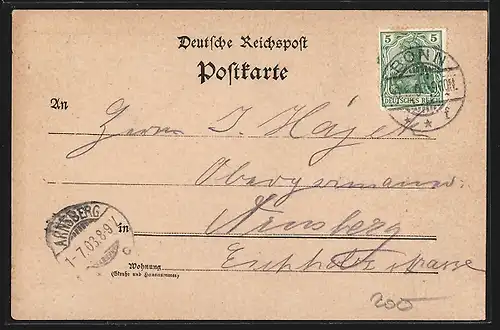 Deutsche Reichspost
Postkarte
5 5
DEUTSCHES REICH
BONN
An
Herrn J. Hájek
in Arnsberg
ARNSBERG
1-7.03.8-9V.
Wohnung
(Straße und Hausnummer)
200